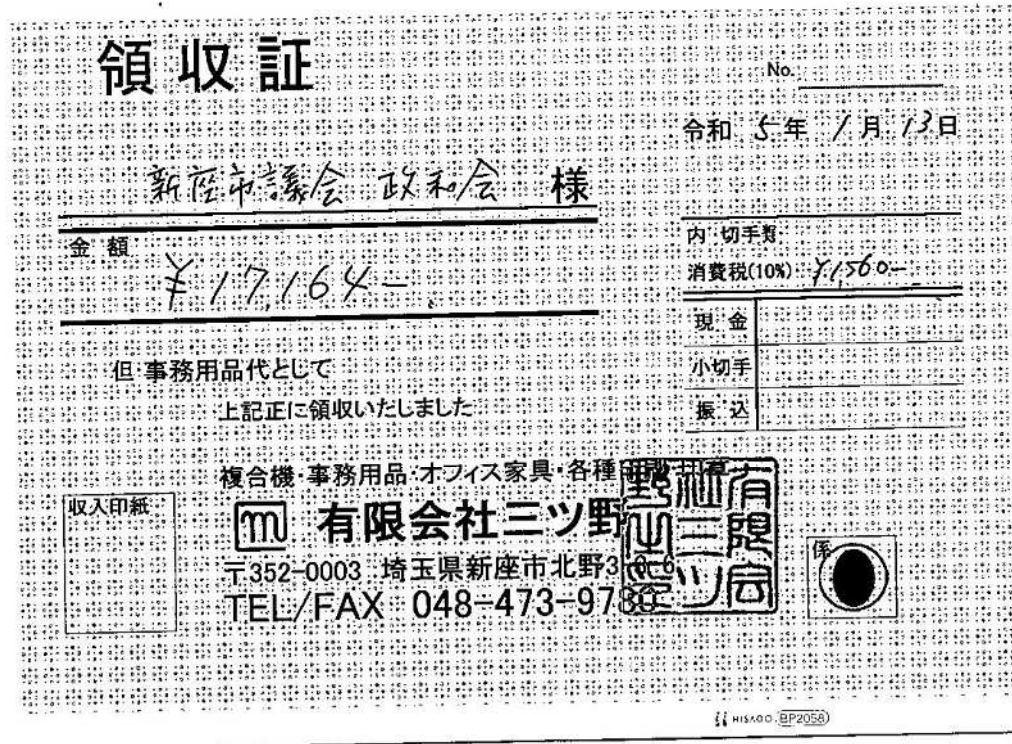 領収証
No.
令和 5年 1月 13日
新座市議会 政和会 様
金額
¥17,164-
内 切手類
消費税(10%) ¥1,560-
現金
小切手
振込
但 事務用品代として
上記正に領収いたしました
複合機・事務用品・オフィス家具・各種
収入印紙
m 有限会社三ツ野
〒352-0003 埼玉県新座市北野3
TEL/FAX 048-473-97
係
HISAGO BP2058